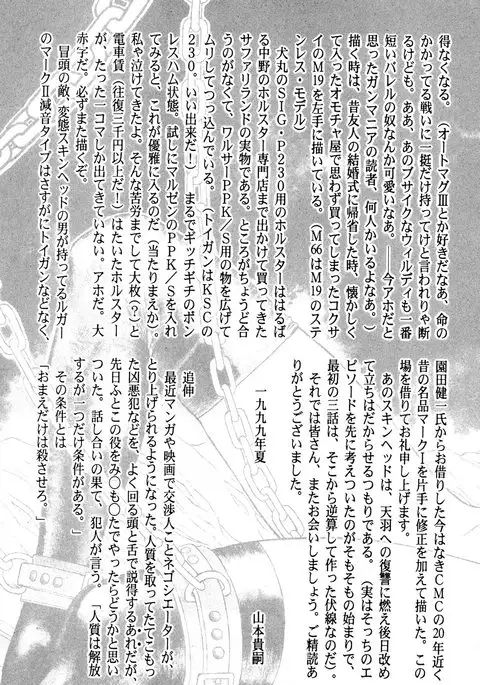 得なくなる。（オートマグⅢとか好きだなあ、命の
かかってる戦いに一挺だけ持ってけと言われりゃ断
るけども。ああ、あのブサイクなウィルディも一番
短いバレルの奴なんか可愛いなあ。――今アホだと
思ったガンマニアの読者、何人かいるよなあ。）
描く時は、昔友人の結婚式に帰省した時、懐かしく
て入ったオモチャ屋で思わず買ってしまったコクサ
イのM19を左手に描いている。（M66はM19のステ
ンレス・モデル）
　犬丸のSIG・P230用のホルスターははるば
る中野のホルスター専門店まで出かけて買ってきた
サファリランドの実物である。ところがちょうど合
うのがなくて、ワルサーPPK/S用の物を広げて
ムリしてつっ込んでいる。（トイガンはKSCの
230。いい出来だ！）　まるでギッチギチのボン
レスハム状態。試しにマルゼンのPPK/Sを入れ
てみると、これが優雅に入るのだ（当たりまえか）。
私ゃ泣けてきたよ。そんな苦労までして大枚（？）と
電車賃（往復三千円以上だ！）はたいたホルスター
が、たった一コマしか出てきていない。アホだ。大
赤字だ。必ずまた描くぞ。
　冒頭の敵、変態スキンヘッドの男が持ってるルガー
のマークⅡ減音タイプはさすがにトイガンなどなく、
園田健一氏からお借りした今はなきCMCの20年近く
昔の名品マークⅠを片手に修正を加えて描いた。この
場を借りてお礼申し上げます。
　あのスキンヘッドは、天羽への復讐に燃え後日改め
て立ちはだからせるつもりである。（実はそっちのエ
ピソードを先に考えついたのがそもそもの始まりで、
最初の三話は、そこから逆算して作った伏線なのだ）。
　それでは皆さん、またお会いしましょう。ご精読あ
りがとうございました。
一九九九年夏
山本貴嗣
追伸
　最近マンガや映画で交渉人ことネゴシエーターが、
とり上げられるようになった。人質を取ってたてこもっ
た凶悪犯などを、よく回る舌で説得するあれだが、
先日ふとこの役をみ○も○たでやったらどうかと思い
ついた。話し合いの果て、犯人が言う。「人質は解放
するが一つだけ条件がある。」
　その条件とは
「おまえだけは殺させろ。」